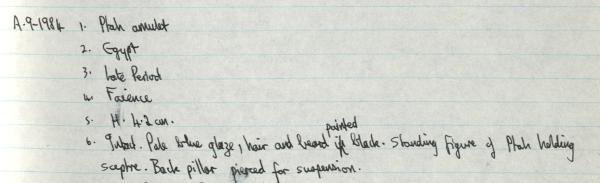 A.9-1984 1. Ptah amulet
2. Egypt
3. Late Period
4. Faience
5. H. 4.2 cm.
6. Intact. Pale blue glaze, hair and beard painted black. Standing figure of Ptah holding
sceptre. Back pillar pierced for suspension.